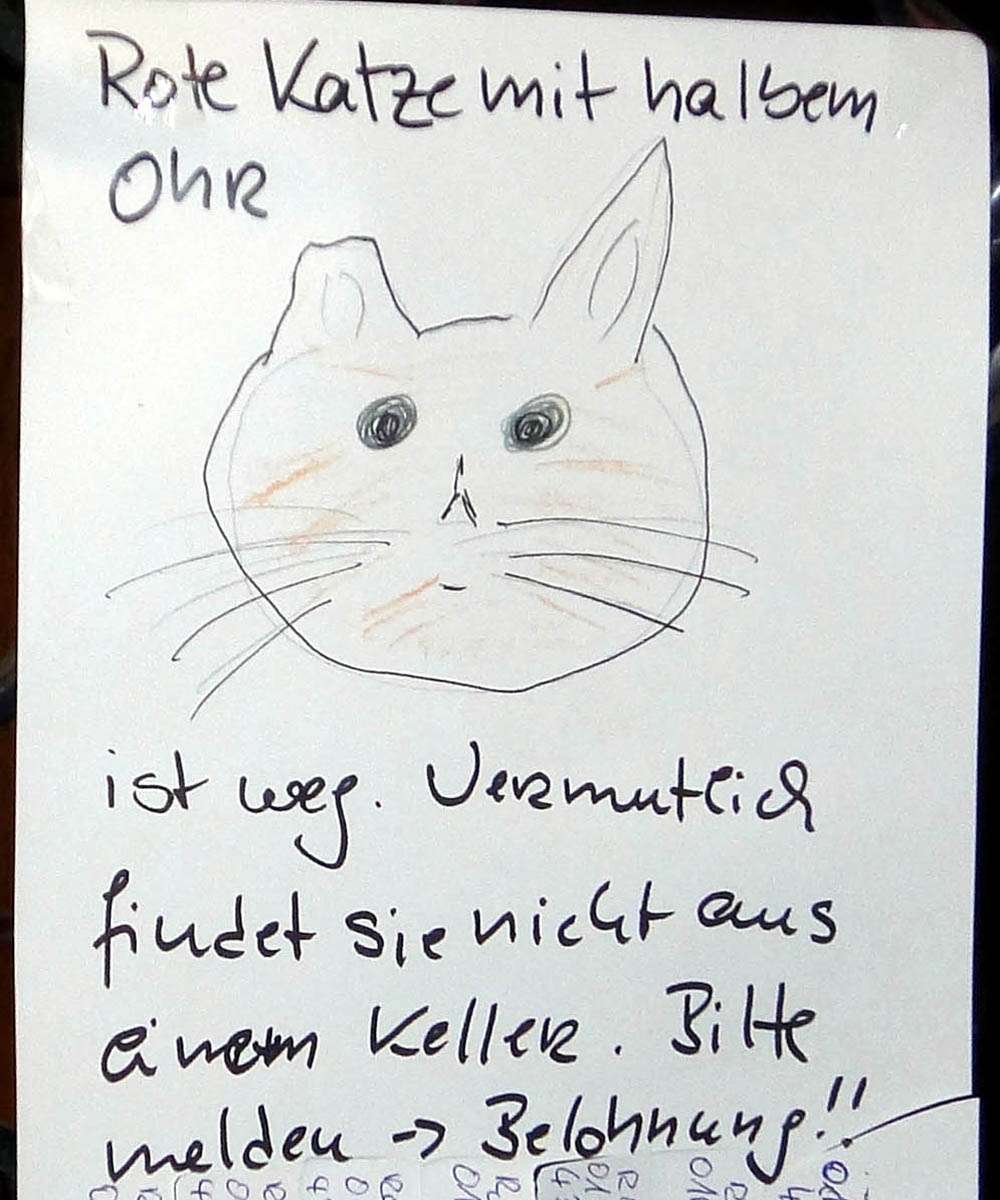 Rote Katze mit halbem
Ohr
ist weg. Vermutlich
findet sie nicht aus
einem Keller. Bitte
melden -> Belohnung!!